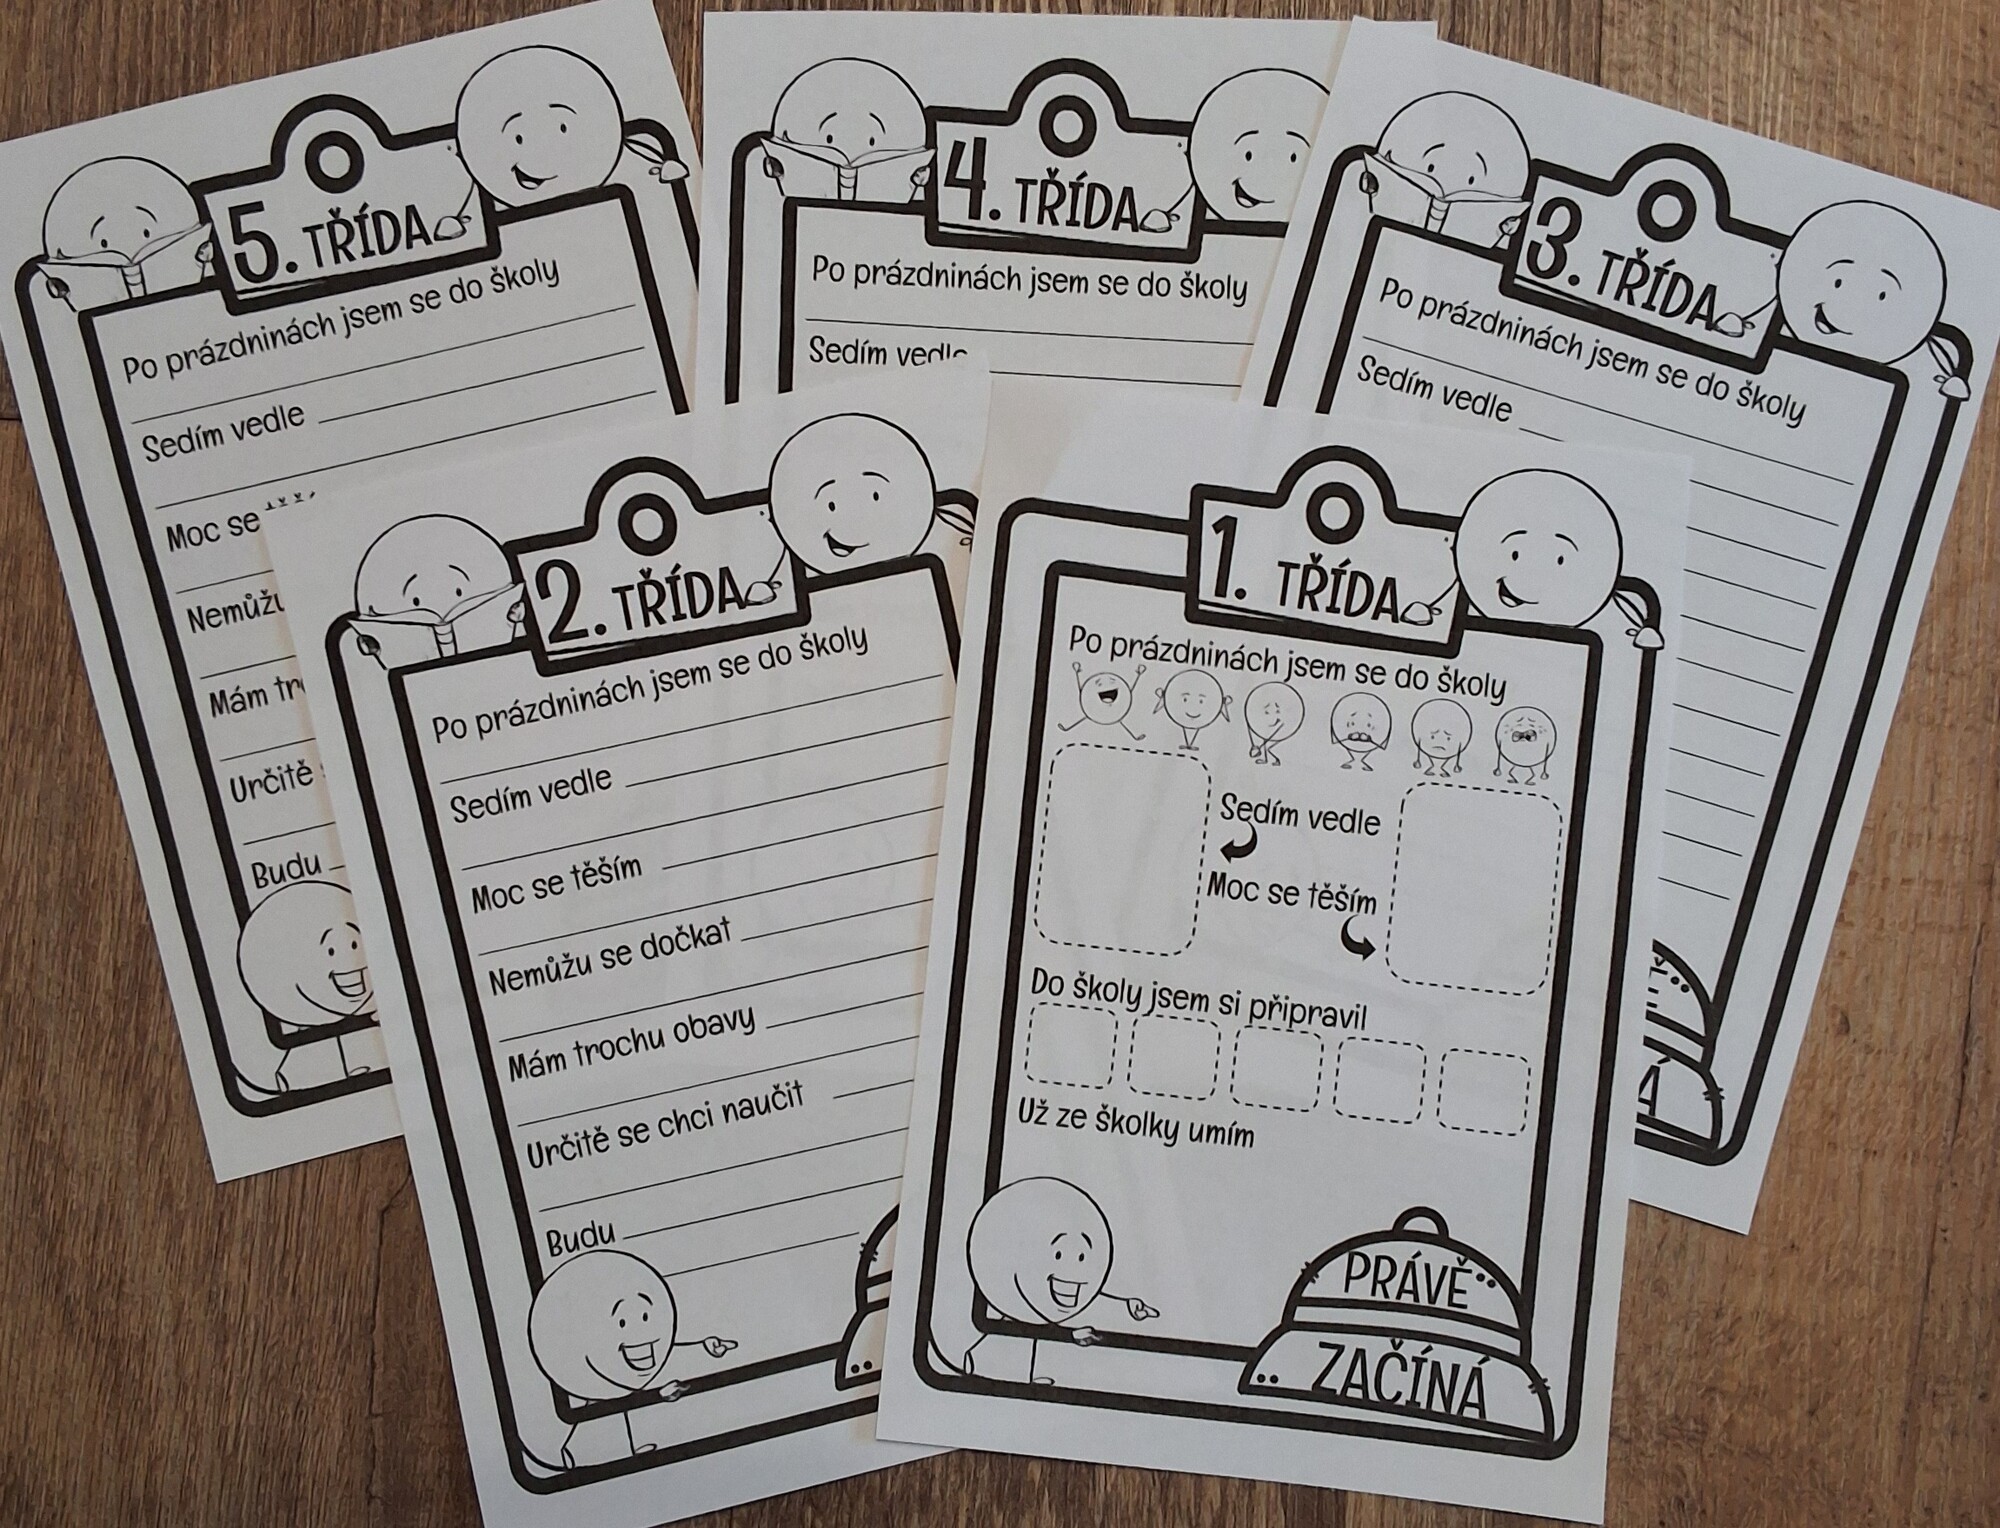 5. TŘÍDA
Po prázdninách jsem se do školy
Sedím vedle
Moc se
Určitě
Budu
4. TŘÍDA
Po prázdninách jsem se do školy
Sedím vedle
3. TŘÍDA
Po prázdninách jsem se do školy
Sedím vedle
2. TŘÍDA
Po prázdninách jsem se do školy
Sedím vedle
Moc se těším
Nemůžu se dočkat
Mám trochu obavy
Určitě se chci naučit
Budu
1. TŘÍDA
Po prázdninách jsem se do školy
Sedím vedle
Moc se těším
Do školy jsem si připravil
Už ze školky umím
PRÁVĚ
ZAČÍNÁ